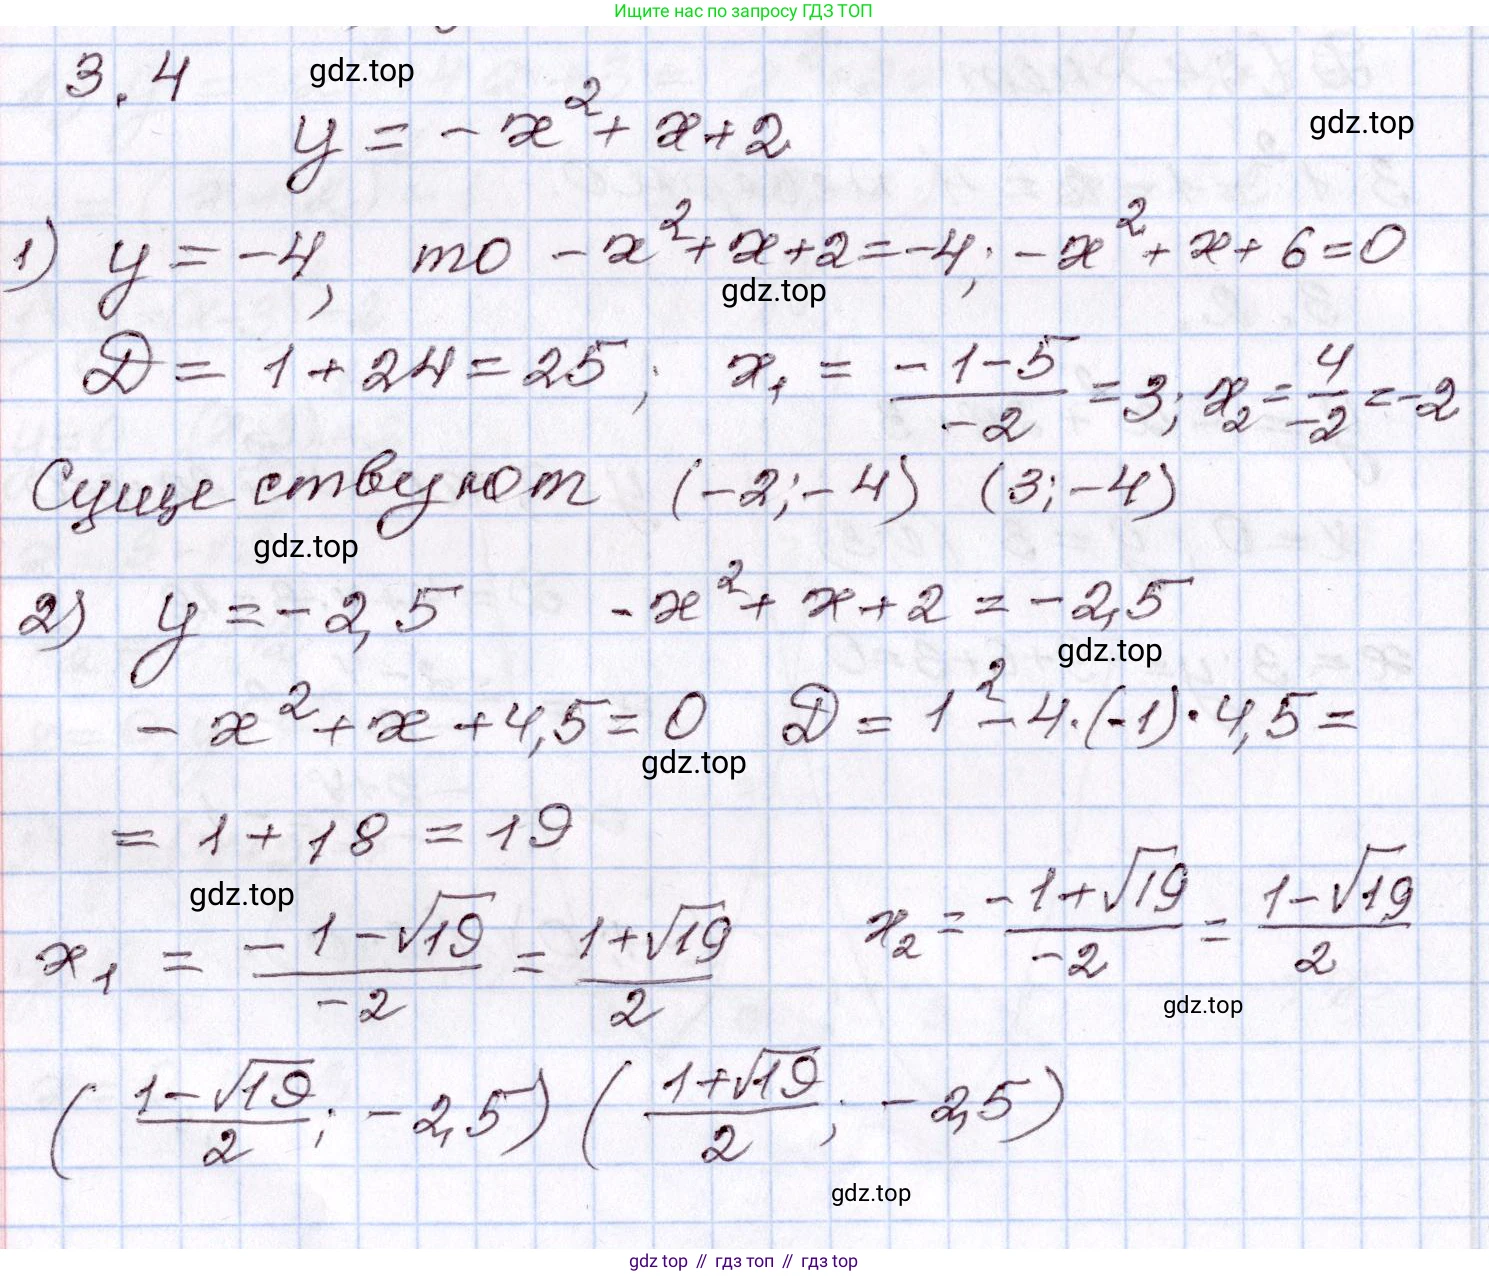 Ищите нас по запросу ГДЗ ТОП
3.4 gdz.top
y = -x² + x + 2 gdz.top
1) y = -4, то -x² + x + 2 = -4; -x² + x + 6 = 0
gdz.top
D = 1 + 24 = 25; x₁ = (-1-5)/(-2) = 3; x₂ = 4/(-2) = -2
Существуют (-2; -4) (3; -4)
gdz.top
2) y = -2,5 -x² + x + 2 = -2,5
gdz.top
-x² + x + 4,5 = 0 D = 1² - 4·(-1)·4,5 =
gdz.top
= 1 + 18 = 19
gdz.top
x₁ = (-1-√19)/(-2) = (1+√19)/2 x₂ = (-1+√19)/(-2) = (1-√19)/2
gdz.top
((1-√19)/2; -2,5) ((1+√19)/2; -2,5)
gdz.top
gdz top // гдз топ // гдз top